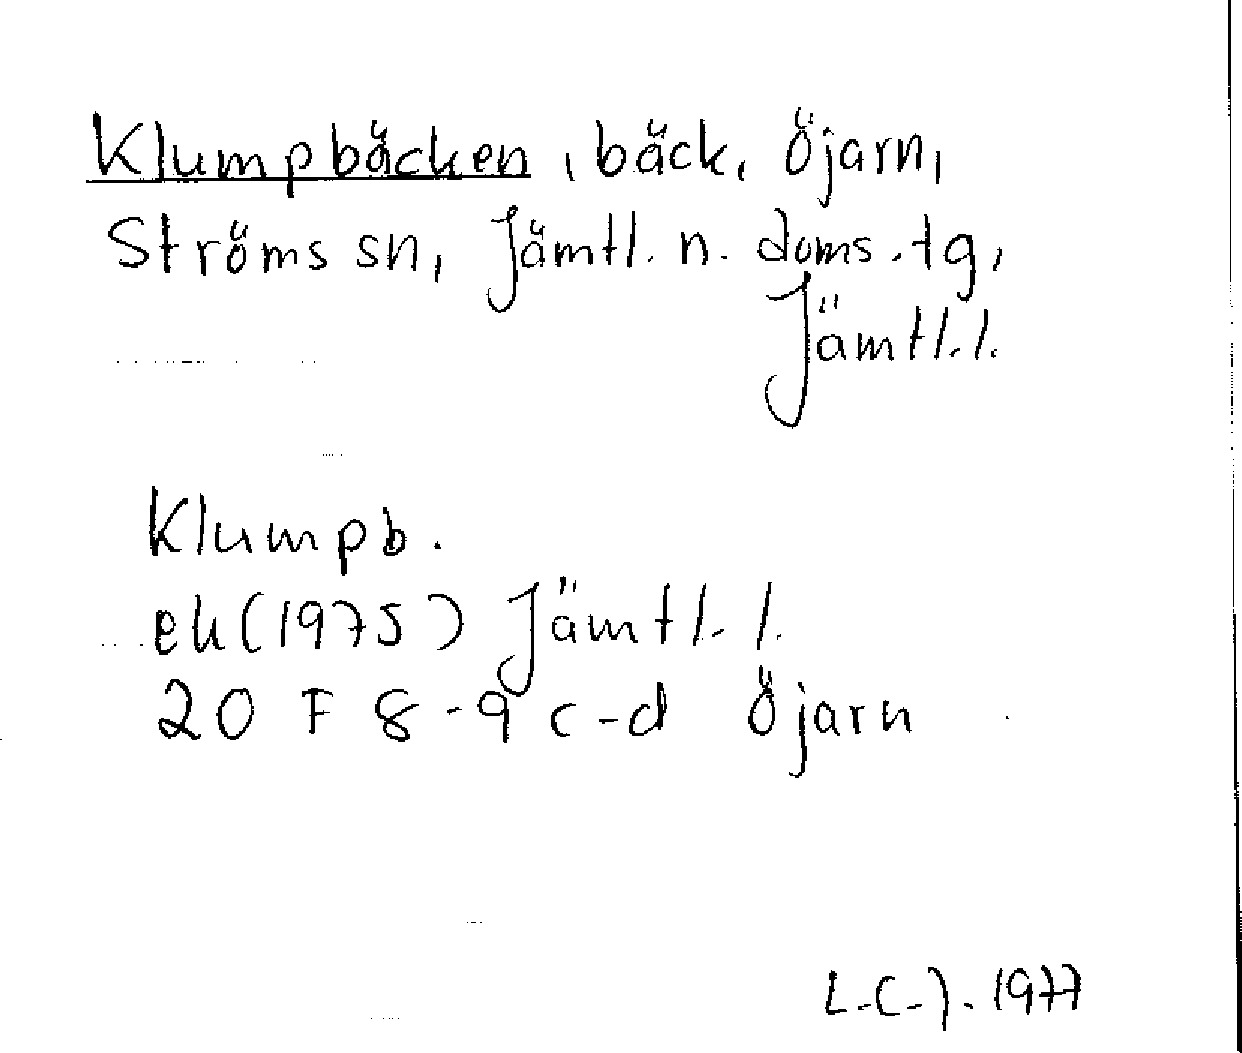 Klumpbäcken, bäck, Öjarn,
Ströms sn, Jämtl. n. doms.tg,
Jämtl.l.
Klumpb.
ek(1975) Jämtl.l.
20 F 8-9 c-d Öjarn
L.C.J. 1977